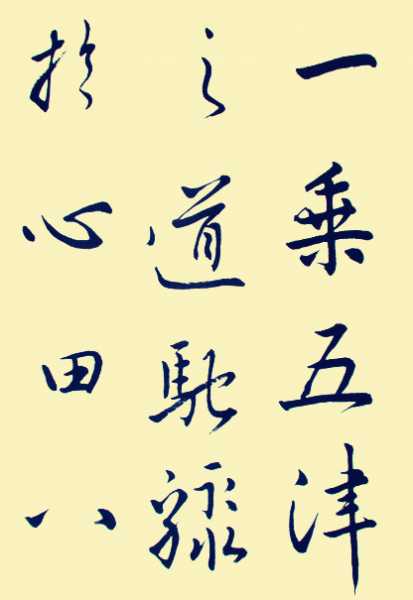 一乘五律
之道馳驟
於心田八